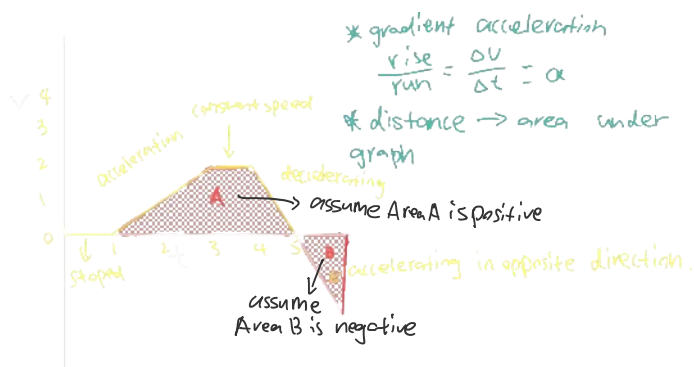 * gradient acceleration
rise/run = ΔV/Δt = a
* distance → area under
graph
v
4
3
2
1
0
constant speed
acceleration
decelerating
A
assume Area A is positive
1 2 3 4 5
t
stoped
B
accelerating in opposite direction.
assume
Area B is negative